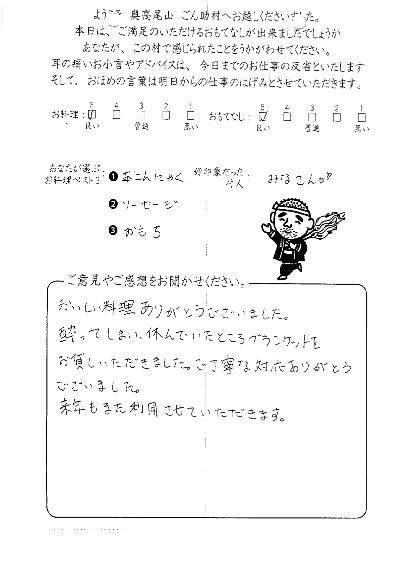 ようこそ 奥高尾山 ごん助村へお越しくださいました。
本日は、ご満足のいただけるおもてなしが出来ましたでしょうか
あなたが、この村で感じられたことをうかがわせてください。
耳の痛いお小言やアドバイスは、今日までのお仕事の反省といたします
そして、おほめの言葉は明日からの仕事のはげみとさせていただきます。
お料理: 5 4 3 2 1 おもてなし: 5 4 3 2 1
良い 普通 悪い 良い 普通 悪い
あなたが選ぶ
お料理ベスト3
❶ 玉こんにゃく
❷ ソーセージ
❸ おもち
好印象だった
村人
: みなさん♡
ご意見やご感想をお聞かせください。
おいしい料理ありがとうございました。
酔ってしまい、休んでいたところブランケットを
お貸しいただきました。ご丁寧な対応ありがとう
ございました。
来年もまた利用させていただきます。